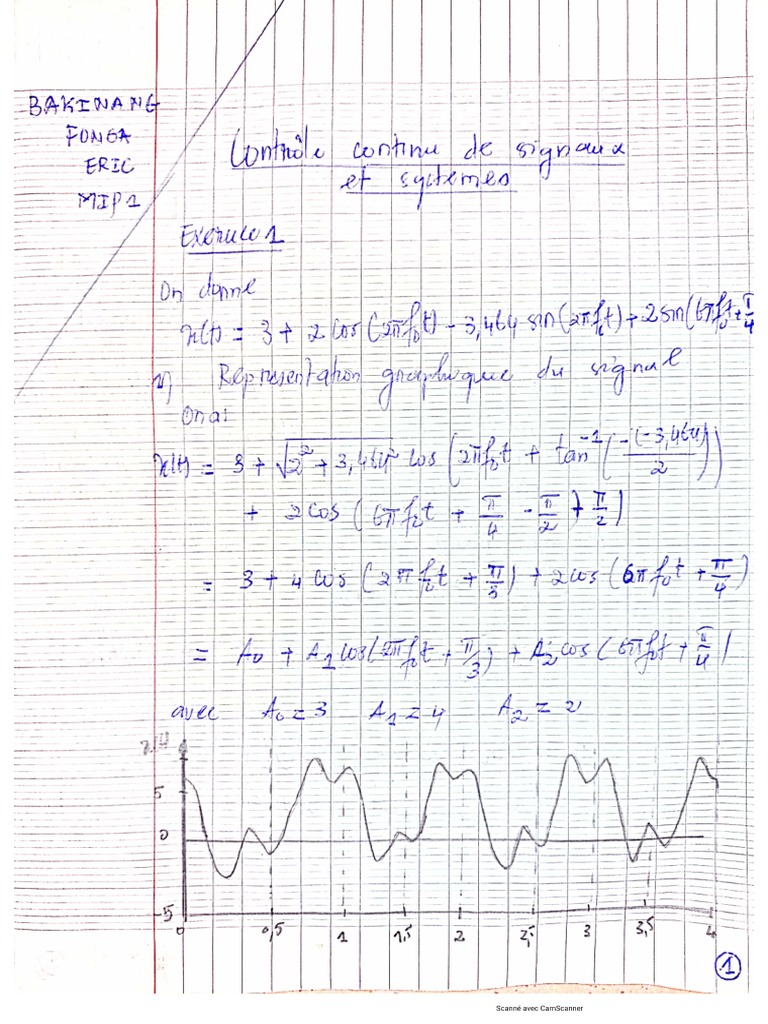 BAKINANG
FONGA
ERIC
MIP1
Contrôle continu de signaux
et systemes
Exercice 1
On donne
x(t) = 3 + 2 cos(2πf₀t) - 3,464 sin(2πf₀t) + 2 sin(6πf₀t + π/4
1) Représentation graphique du signal
On a:
x(t) = 3 + √(2² + 3,464²) cos(2πf₀t + tan⁻¹(-(-3,464)/2))
+ 2cos(6πf₀t + π/4 - π/2 + π/2)
= 3 + 4 cos(2πf₀t + π/3) + 2cos(6πf₀t + π/4)
= A₀ + A₁ cos(2πf₀t + π/3) + A₂ cos(6πf₀t + π/4)
avec A₀ = 3 A₁ = 4 A₂ = 2
5
0
-5
0 0,5 1 1,5 2 2,5 3 3,5 4
1
Scanné avec CamScanner